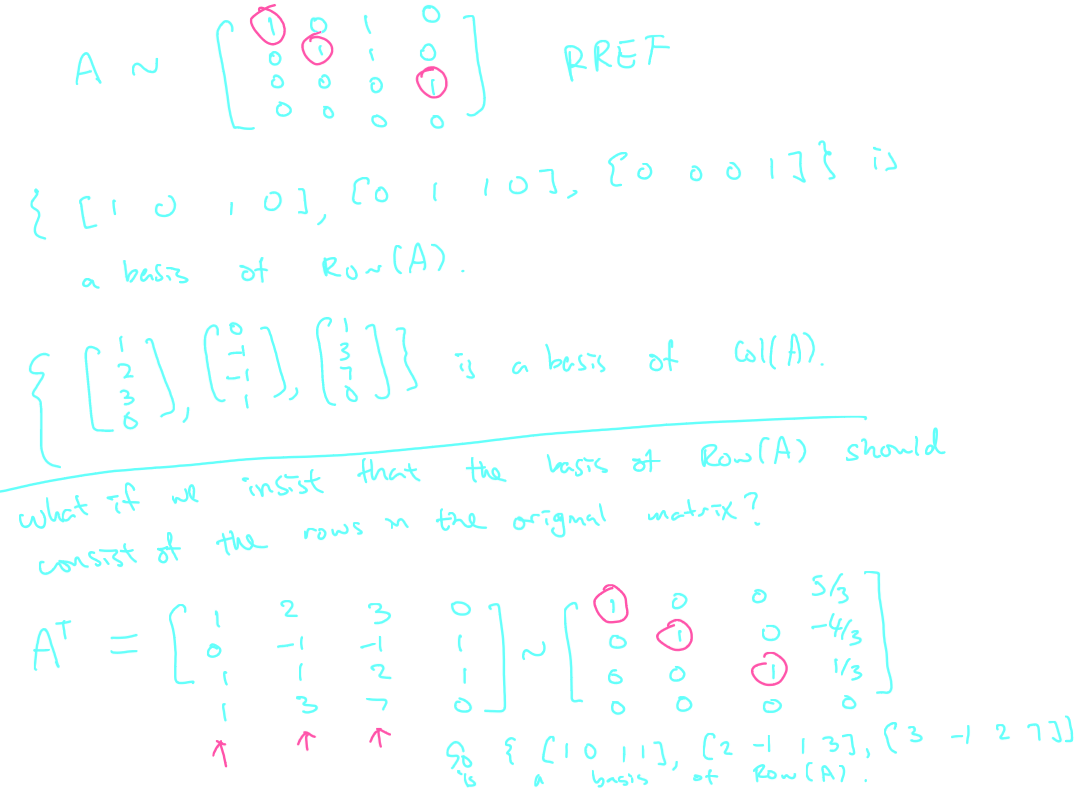 A ~ [ 1 0 1 0 ; 0 1 1 0 ; 0 0 0 1 ; 0 0 0 0 ] RREF
{ [1 0 1 0], [0 1 1 0], [0 0 0 1] } is
a basis of Row(A).
{ [ 1 2 3 0 ], [ 0 -1 -1 1 ], [ 1 3 7 0 ] } is a basis of Col(A).
What if we insist that the basis of Row(A) should
consist of the rows in the original matrix?
A^T = [ 1 2 3 0 ; 0 -1 -1 1 ; 1 1 2 1 ; 1 3 7 0 ] ~ [ 1 0 0 5/3 ; 0 1 0 -4/3 ; 0 0 1 1/3 ; 0 0 0 0 ]
↑ ↑ ↑
So { [1 0 1 1], [2 -1 1 3], [3 -1 2 7] }
is a basis of Row(A).